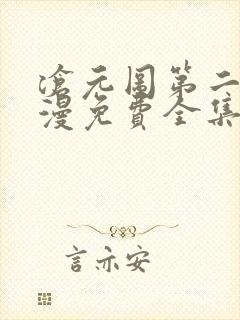 滄元圖第二
漫免費全集
言亦安